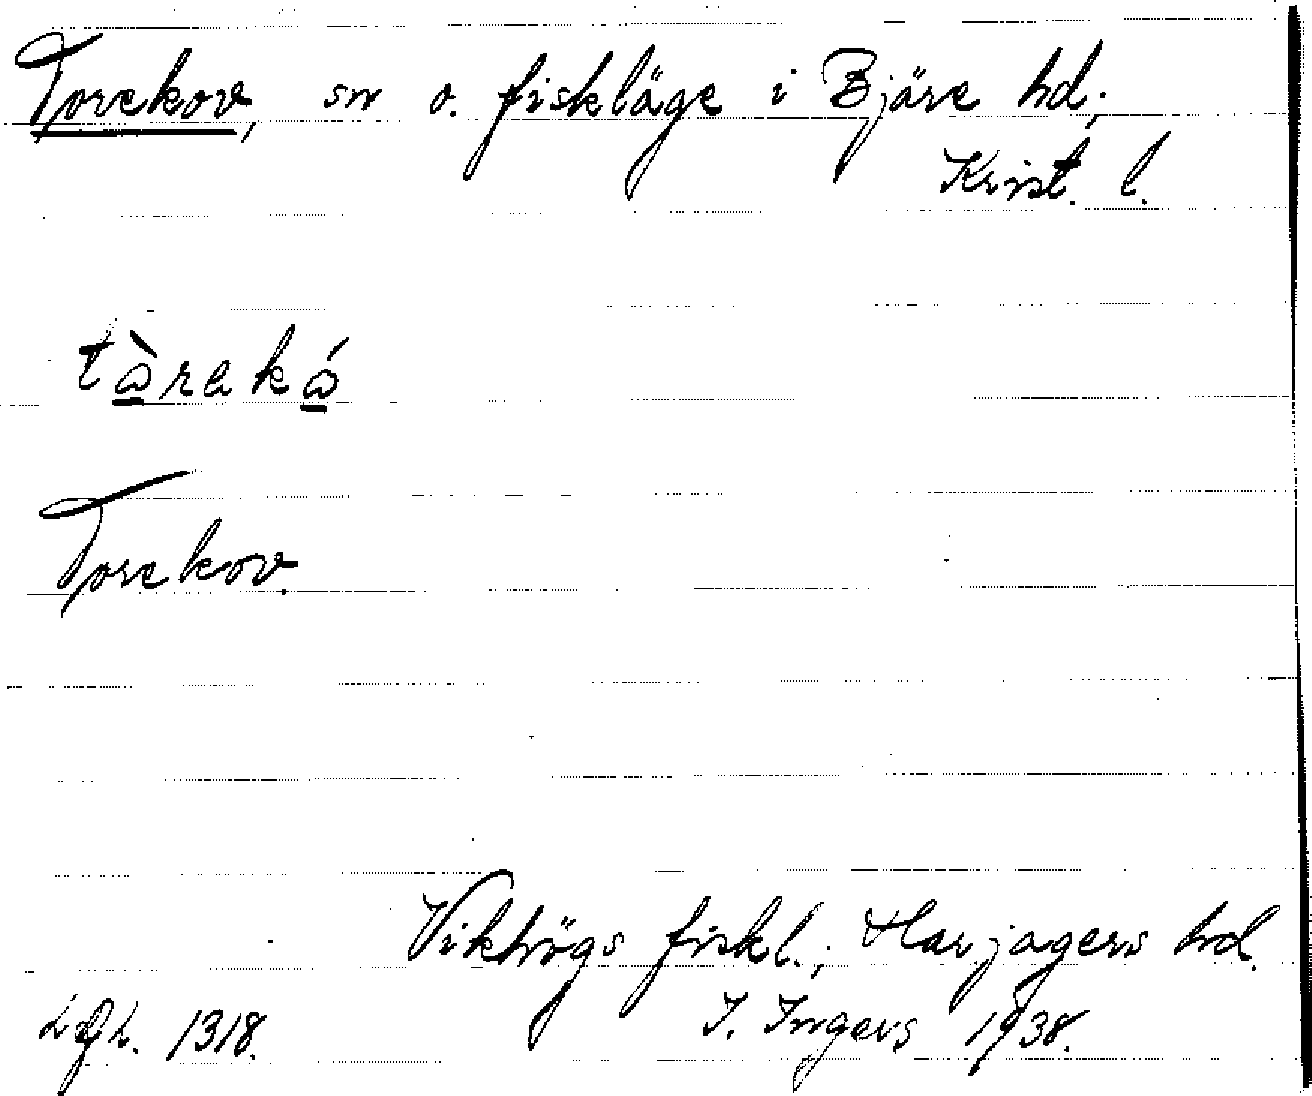 Torekov, sn o. fiskläge i Bjäre hd;
Krist. l.
tàreká
Torekov.
Vikhögs fiskl.; Harjagers hd.
I. Ingers 1938.
1318.